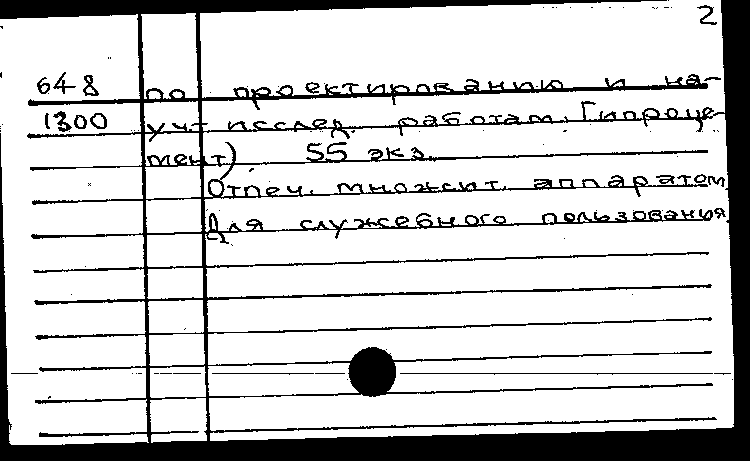 2
648 по проектированию и на-
1300 учн. исслед. работам. Гипроце-
мент). 55 экз.
Отпеч. множит. аппаратом
Для служебного пользования.